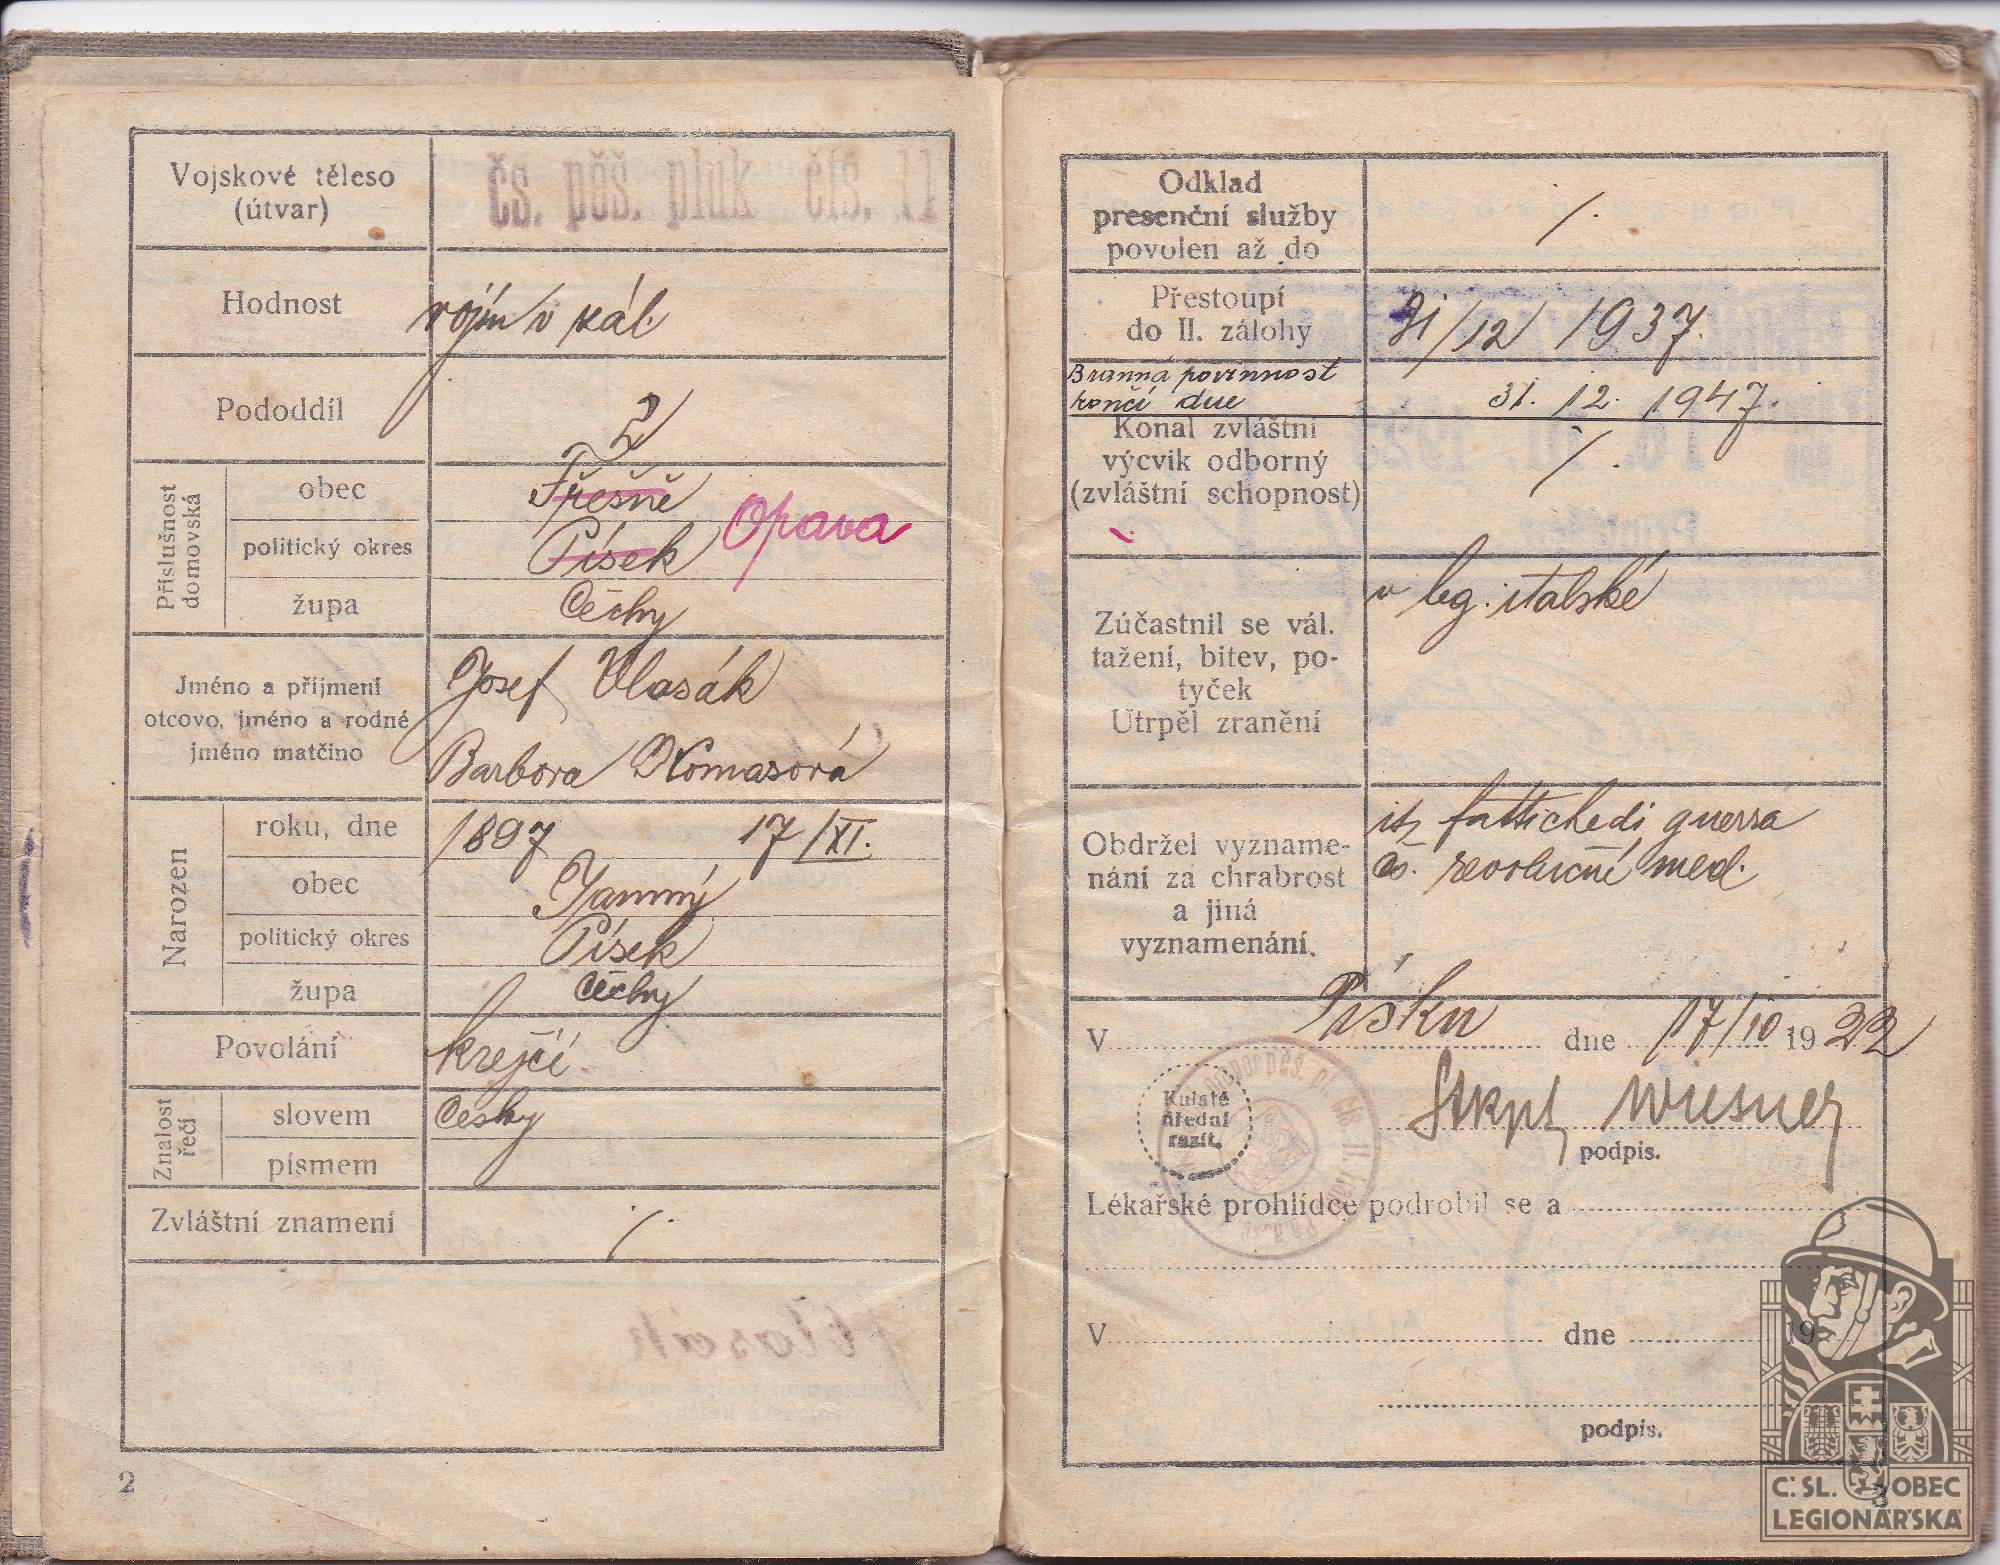 Vojskové těleso
(útvar)
čs. pěš. pluk čís. 11
Hodnost
vojín v zál.
Pododdíl
2
Příslušnost
domovská
obec
Třešně
politický okres
Písek
Opava
župa
Čechy
Jméno a příjmení
otcovo, jméno a rodné
jméno matčino
Josef Vlasák
Barbora
Narozen
roku, dne
1897 17/XI.
obec
politický okres
Písek
župa
Čechy
Povolání
krejčí
Znalost
řečí
slovem
česky
písmem
Zvláštní znamení
·/·
2
Odklad
presenční služby
povolen až do
·/·
Přestoupí
do II. zálohy
31/12 1937.
Branná povinnost
končí dne
31. 12. 1947.
Konal zvláštní
výcvik odborný
(zvláštní schopnost)
·/·
Zúčastnil se vál.
tažení, bitev, po-
tyček
Utrpěl zranění
v leg. italské
Obdržel vyzname-
nání za chrabrost
a jiná
vyznamenání.
it. fattichedi guerra
čs. revoluční med.
V Písku dne 17/10 1922
Kulaté
úřední
razít.
Štkpt. Wiesner
podpis.
Lékařské prohlídce podrobil se a
V dne 19
podpis.
Č. SL. OBEC
LEGIONÁŘSKÁ